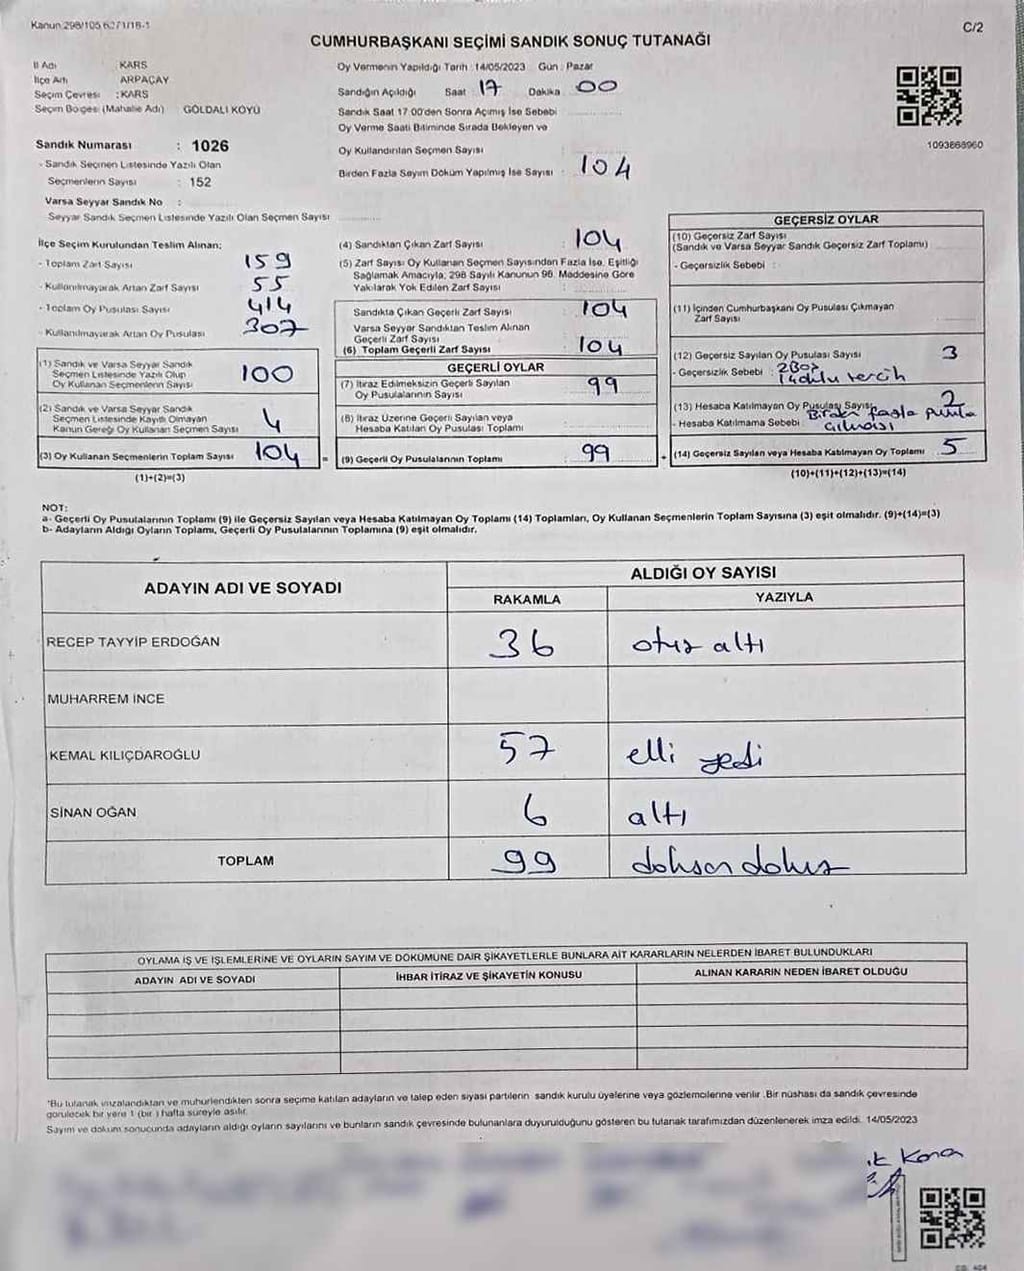 Kanun 298/105 6271/18-1
C/2
CUMHURBAŞKANI SEÇİMİ SANDIK SONUÇ TUTANAĞI
İl Adı : KARS
İlçe Adı : ARPAÇAY
Seçim Çevresi : KARS
Seçim Bölgesi (Mahalle Adı) : GÖLDALI KÖYÜ
Sandık Numarası : 1026
- Sandık Seçmen Listesinde Yazılı Olan
Seçmenlerin Sayısı : 152
Varsa Seyyar Sandık No :
Seyyar Sandık Seçmen Listesinde Yazılı Olan Seçmen Sayısı
Oy Vermenin Yapıldığı Tarih : 14/05/2023 Gün : Pazar
Sandığın Açıldığı Saat 17 Dakika 00
Sandık Saat 17:00'den Sonra Açılmış İse Sebebi
Oy Verme Saati Bitiminde Sırada Bekleyen ve
Oy Kullandırılan Seçmen Sayısı
Birden Fazla Sayım Döküm Yapılmış İse Sayısı : 104
1093668960
İlçe Seçim Kurulundan Teslim Alınan;
- Toplam Zarf Sayısı 159
- Kullanılmayarak Artan Zarf Sayısı 55
- Toplam Oy Pusulası Sayısı 414
- Kullanılmayarak Artan Oy Pusulası 307
(1) Sandık ve Varsa Seyyar Sandık
Seçmen Listesinde Yazılı Olup
Oy Kullanan Seçmenlerin Sayısı 100
(2) Sandık ve Varsa Seyyar Sandık
Seçmen Listesinde Kayıtlı Olmayan
Kanun Gereği Oy Kullanan Seçmen Sayısı 4
(3) Oy Kullanan Seçmenlerin Toplam Sayısı 104
(1)+(2)=(3)
(4) Sandıktan Çıkan Zarf Sayısı : 104
(5) Zarf Sayısı Oy Kullanan Seçmen Sayısından Fazla İse, Eşitliği
Sağlamak Amacıyla; 298 Sayılı Kanunun 98. Maddesine Göre
Yakılarak Yok Edilen Zarf Sayısı
Sandıkta Çıkan Geçerli Zarf Sayısı : 104
Varsa Seyyar Sandıktan Teslim Alınan
Geçerli Zarf Sayısı
(6) Toplam Geçerli Zarf Sayısı : 104
GEÇERLİ OYLAR
(7) İtiraz Edilmeksizin Geçerli Sayılan
Oy Pusulasının Sayısı 99
(8) İtiraz Üzerine Geçerli Sayılan veya
Hesaba Katılan Oy Pusulası Toplamı
= (9) Geçerli Oy Pusulalarının Toplamı 99
GEÇERSİZ OYLAR
(10) Geçersiz Zarf Sayısı
(Sandık ve Varsa Seyyar Sandık Geçersiz Zarf Toplamı)
- Geçersizlik Sebebi :
(11) İçinden Cumhurbaşkanı Oy Pusulası Çıkmayan
Zarf Sayısı
(12) Geçersiz Sayılan Oy Pusulası Sayısı 3
- Geçersizlik Sebebi : tercih
(13) Hesaba Katılmayan Oy Pusulası Sayısı 2
- Hesaba Katılmama Sebebi : fazla pusula
çıkması
+ (14) Geçersiz Sayılan veya Hesaba Katılmayan Oy Toplamı 5
(10)+(11)+(12)+(13)=(14)
NOT:
a- Geçerli Oy Pusulalarının Toplamı (9) ile Geçersiz Sayılan veya Hesaba Katılmayan Oy Toplamı (14) Toplamları, Oy Kullanan Seçmenlerin Toplam Sayısına (3) eşit olmalıdır. (9)+(14)=(3)
b- Adayların Aldığı Oyların Toplamı, Geçerli Oy Pusulalarının Toplamına (9) eşit olmalıdır.
ADAYIN ADI VE SOYADI
ALDIĞI OY SAYISI
RAKAMLA YAZIYLA
RECEP TAYYİP ERDOĞAN 36 otuz altı
MUHARREM İNCE
KEMAL KILIÇDAROĞLU 57 elli yedi
SİNAN OĞAN 6 altı
TOPLAM 99 doksan dokuz
OYLAMA İŞ VE İŞLEMLERİNE VE OYLARIN SAYIM VE DÖKÜMÜNE DAİR ŞİKAYETLERLE BUNLARA AİT KARARLARIN NELERDEN İBARET BULUNDUKLARI
ADAYIN ADI VE SOYADI İHBAR İTİRAZ VE ŞİKAYETİN KONUSU ALINAN KARARIN NEDEN İBARET OLDUĞU
*Bu tutanak imzalandıktan ve mühürlendikten sonra seçime katılan adayların ve talep eden siyasi partilerin sandık kurulu üyelerine veya gözlemcilerine verilir .Bir nüshası da sandık çevresinde
görülecek bir yere 1 (bir ) hafta süreyle asılır.
Sayım ve döküm sonucunda adayların aldığı oyların sayılarını ve bunların sandık çevresinde bulunanlara duyurulduğunu gösteren bu tutanak tarafımızdan düzenlenerek imza edildi. 14/05/2023